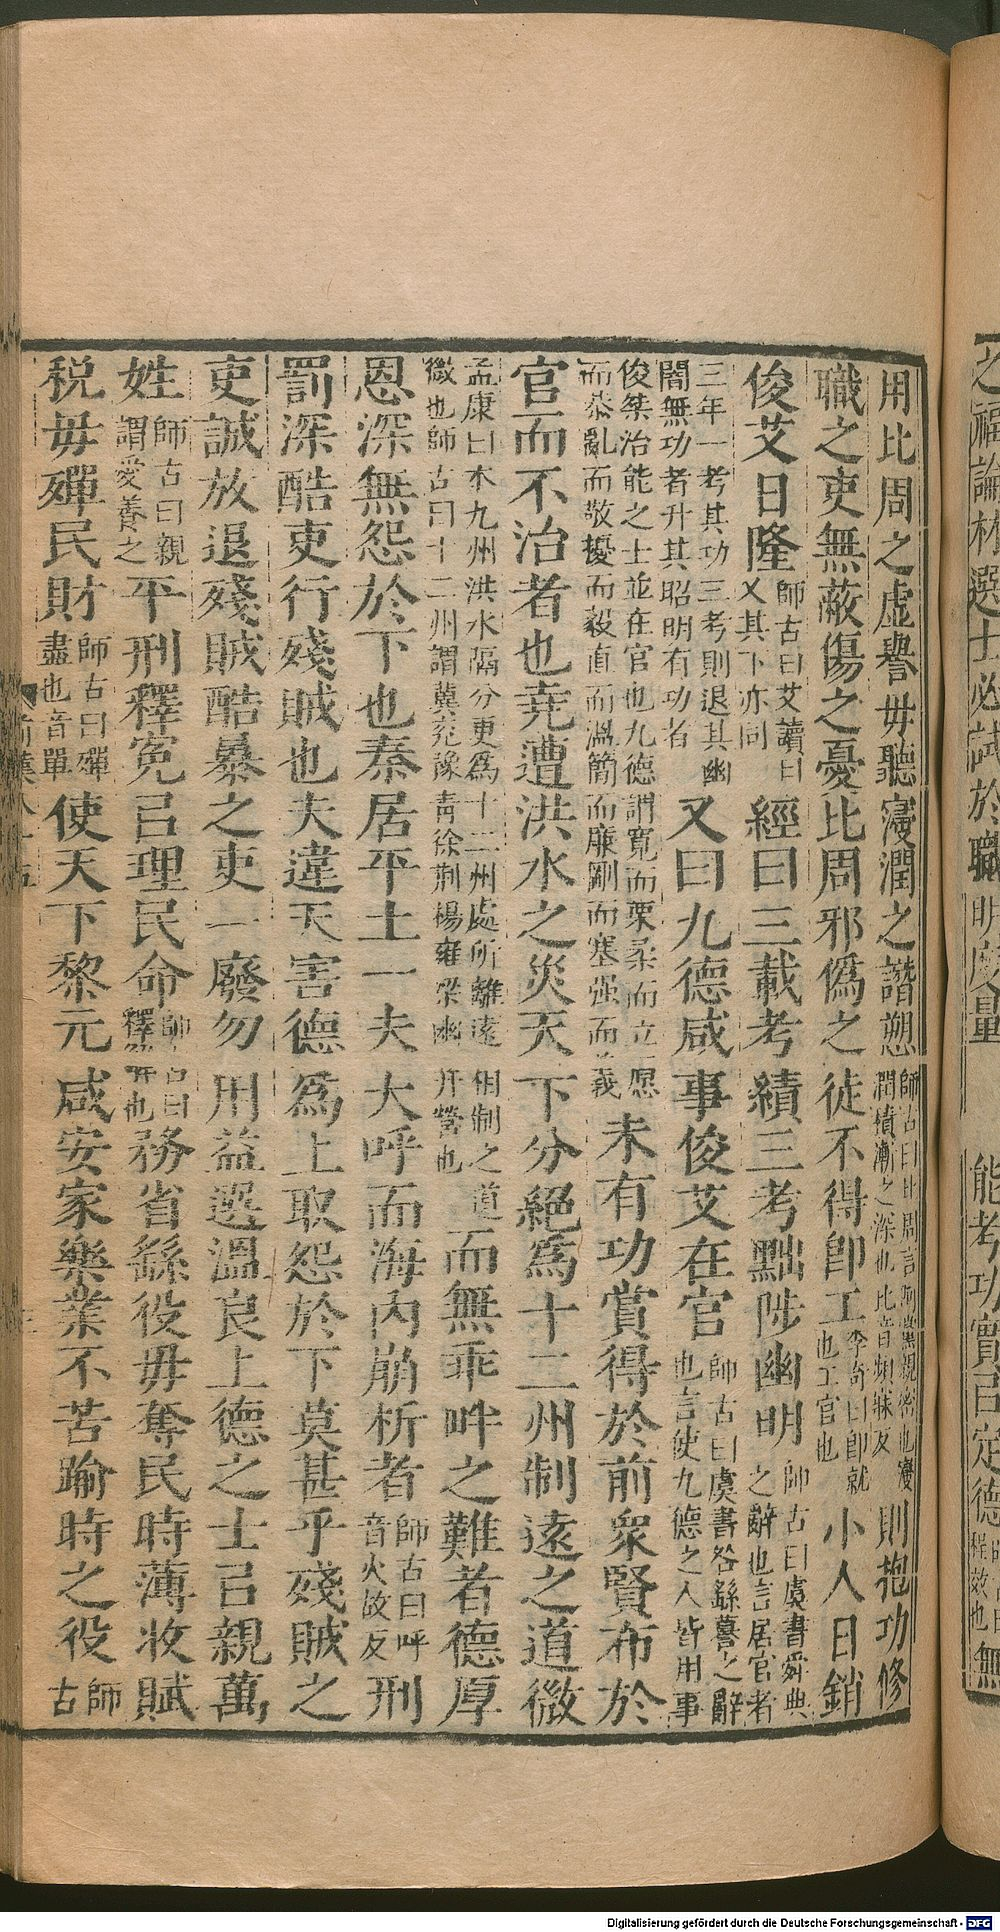 之福論材選士必試於職明度量能考功實㠯定德程效也無
用比周之虛譽毋聽寖潤之譖愬師古曰比周言阿黨親密也寖潤積漸之深也比音頻寐反則抱功修
職之吏無蔽傷之憂比周邪僞之徒不得卽工李奇曰卽就也工官也小人日銷
俊艾日隆師古曰艾讀曰乂其下亦同經曰三載考績三考黜陟幽明師古曰虞書舜典之辭也言居官者
三年一考其功三考則退其幽闇無功者升其昭明有功者又曰九德咸事俊艾在官師古曰虞書咎繇謩之辭也言使九德之人皆用事
俊桀治能之士並在官也九德謂寬而栗柔而立愿而恭亂而敬擾而毅直而溫簡而廉剛而塞强而義未有功賞得於前衆賢布於
官而不治者也堯遭洪水之災天下分絕爲十二州制遠之道微
孟康曰本九州洪水隔分更爲十二州處所離遠相制之道微也師古曰十二州謂冀兗豫靑徐荆楊雍梁幽幷營也而無乖畔之難者德厚
恩深無怨於下也秦居平土一夫大呼而海內崩析者師古曰呼音火故反刑
罰深酷吏行殘賊也夫違天害德爲上取怨於下莫甚乎殘賊之
吏誠放退殘賊酷暴之吏一廢勿用益選溫良上德之士㠯親萬
姓師古曰親謂愛養之平刑釋冤㠯理民命師古曰釋解也務省繇役毋奪民時薄收賦
稅毋殫民財師古曰殫盡也音單使天下黎元咸安家樂業不苦踰時之役師古
Digitalisierung gefördert durch die Deutsche Forschungsgemeinschaft - DFG